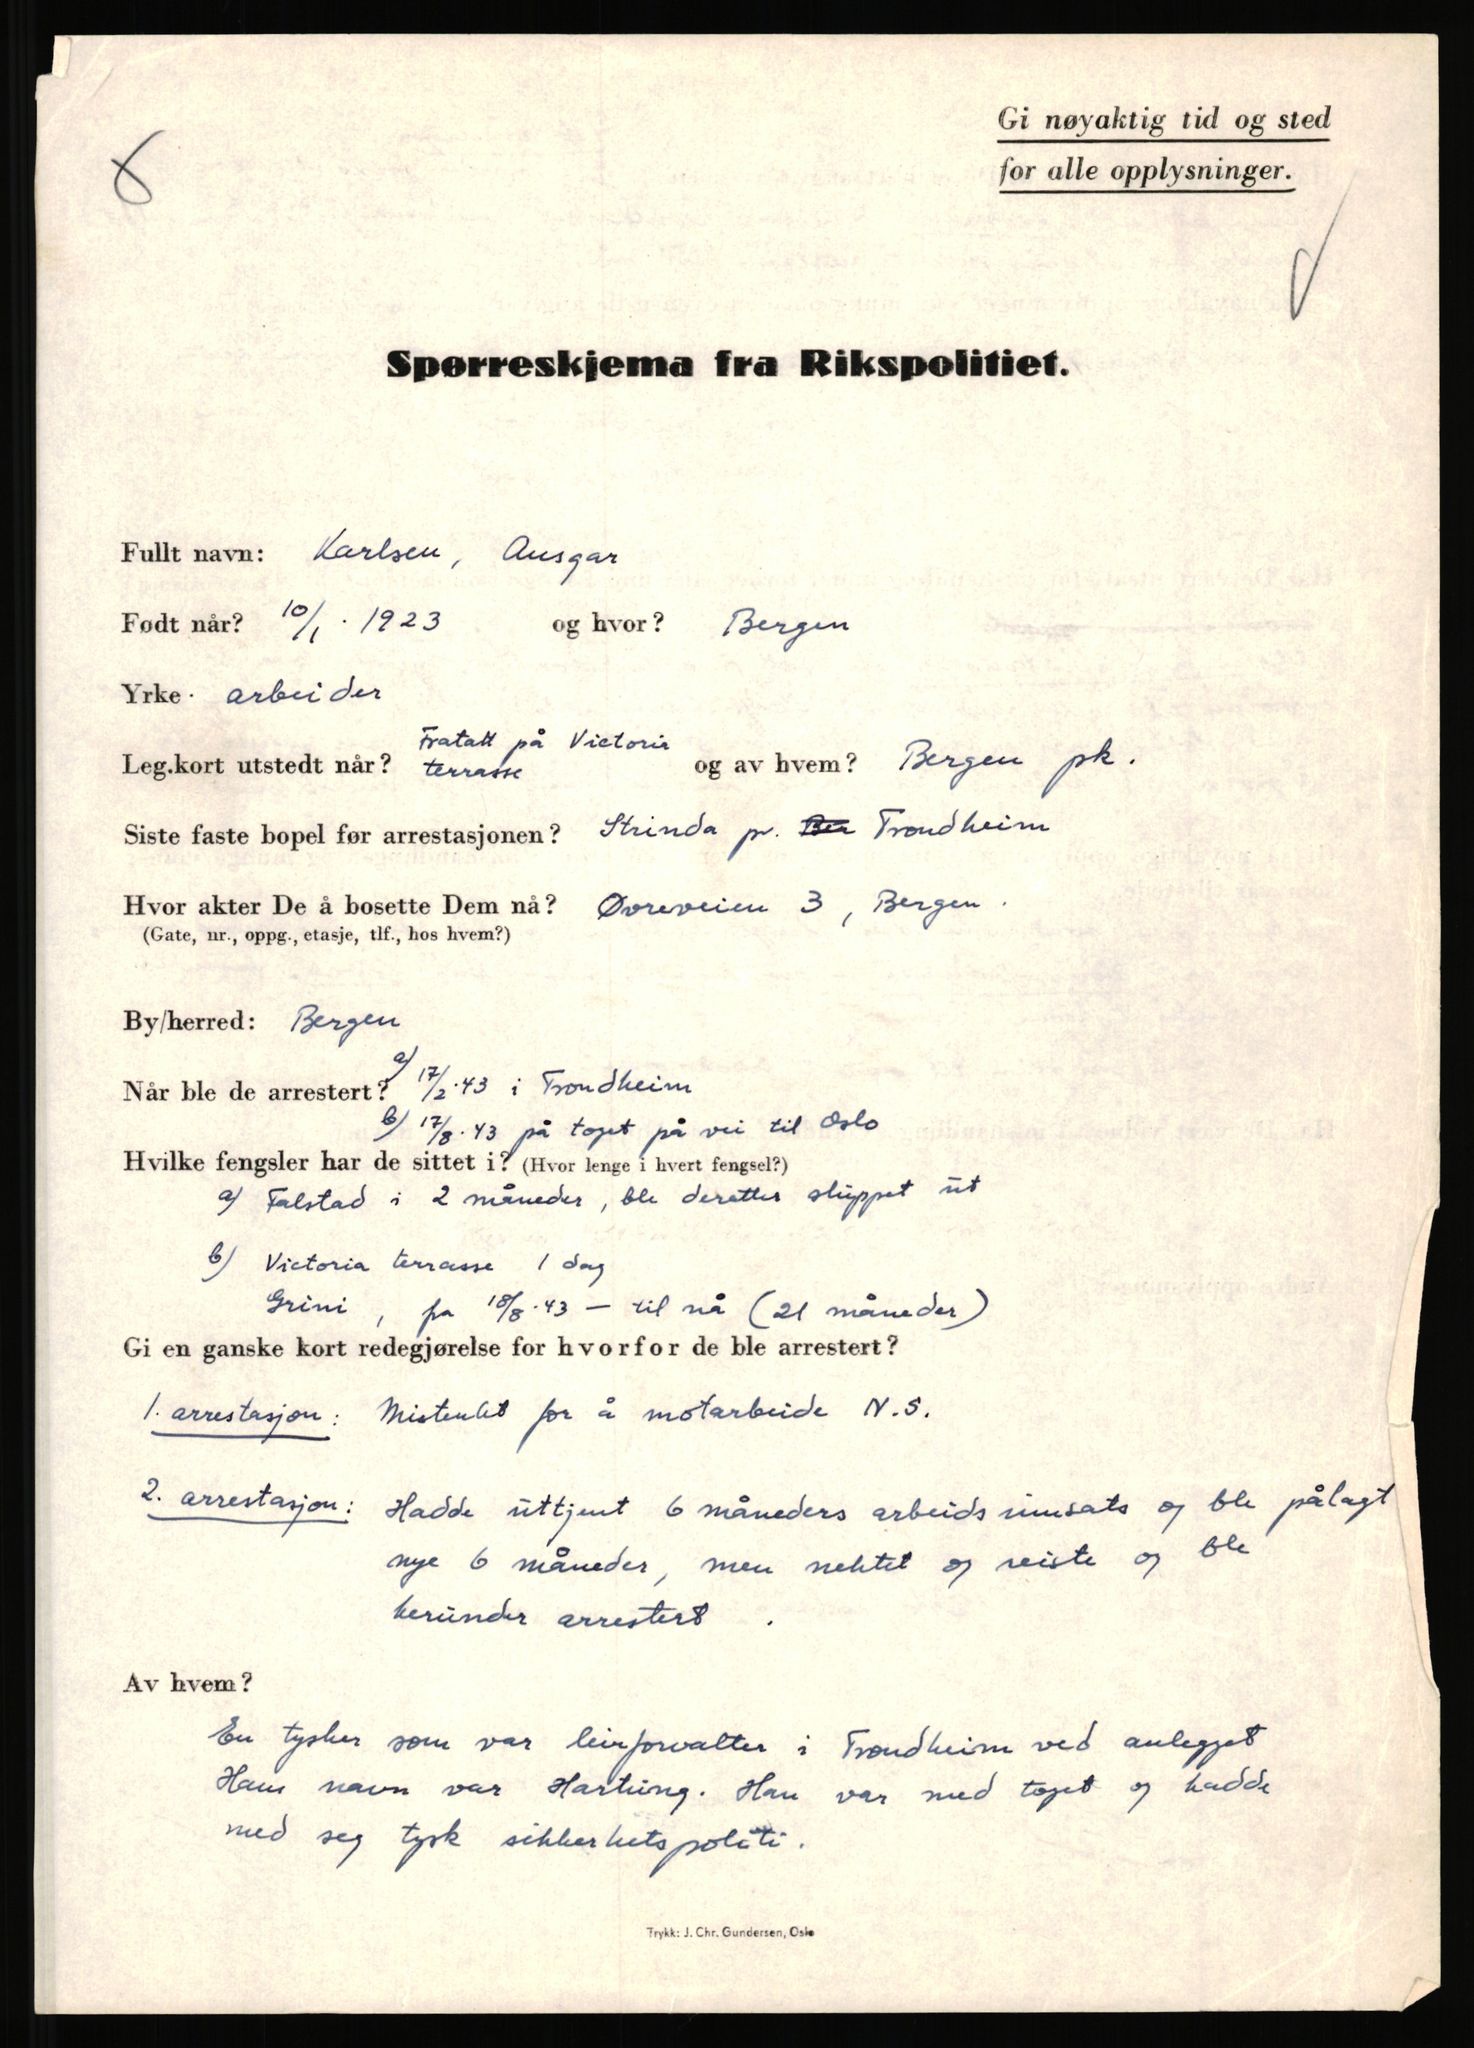 Gi nøyaktig tid og sted
for alle opplysninger.
Spørreskjema fra Rikspolitiet.
Fullt navn: Karlsen, Ansgar
Født når? 10/1. 1923 og hvor? Bergen
Yrke. arbeider
Leg.kort utstedt når? Fratatt på Victoria terrasse og av hvem? Bergen pk.
Siste faste bopel før arrestasjonen? Strinda pr. Trondheim
Hvor akter De å bosette Dem nå? Øvreveien 3, Bergen.
(Gate, nr., oppg., etasje, tlf., hos hvem?)
By/herred: Bergen
Når ble de arrestert? a) 17/2.43 i Trondheim
b) 17/8.43 på toget på vei til Oslo
Hvilke fengsler har de sittet i? (Hvor lenge i hvert fengsel?)
a) Falstad i 2 måneder, ble deretter sluppet ut
b) Victoria terrasse 1 dag
Grini, fra 18/8.43 — til nå (21 måneder)
Gi en ganske kort redegjørelse for hvorfor de ble arrestert?
1. arrestasjon: Mistenkt for å motarbeide N.S.
2. arrestasjon: Hadde uttjent 6 måneders arbeidsinnsats og ble pålagt
nye 6 måneder, men nektet og reiste og ble
herunder arrestert.
Av hvem?
En tysker som var leirforvalter i Trondheim ved anlegget
Hans navn var Hartung. Han var med toget og hadde
med seg tysk sikkerhetspoliti.
Trykk: J. Chr. Gundersen, Oslo